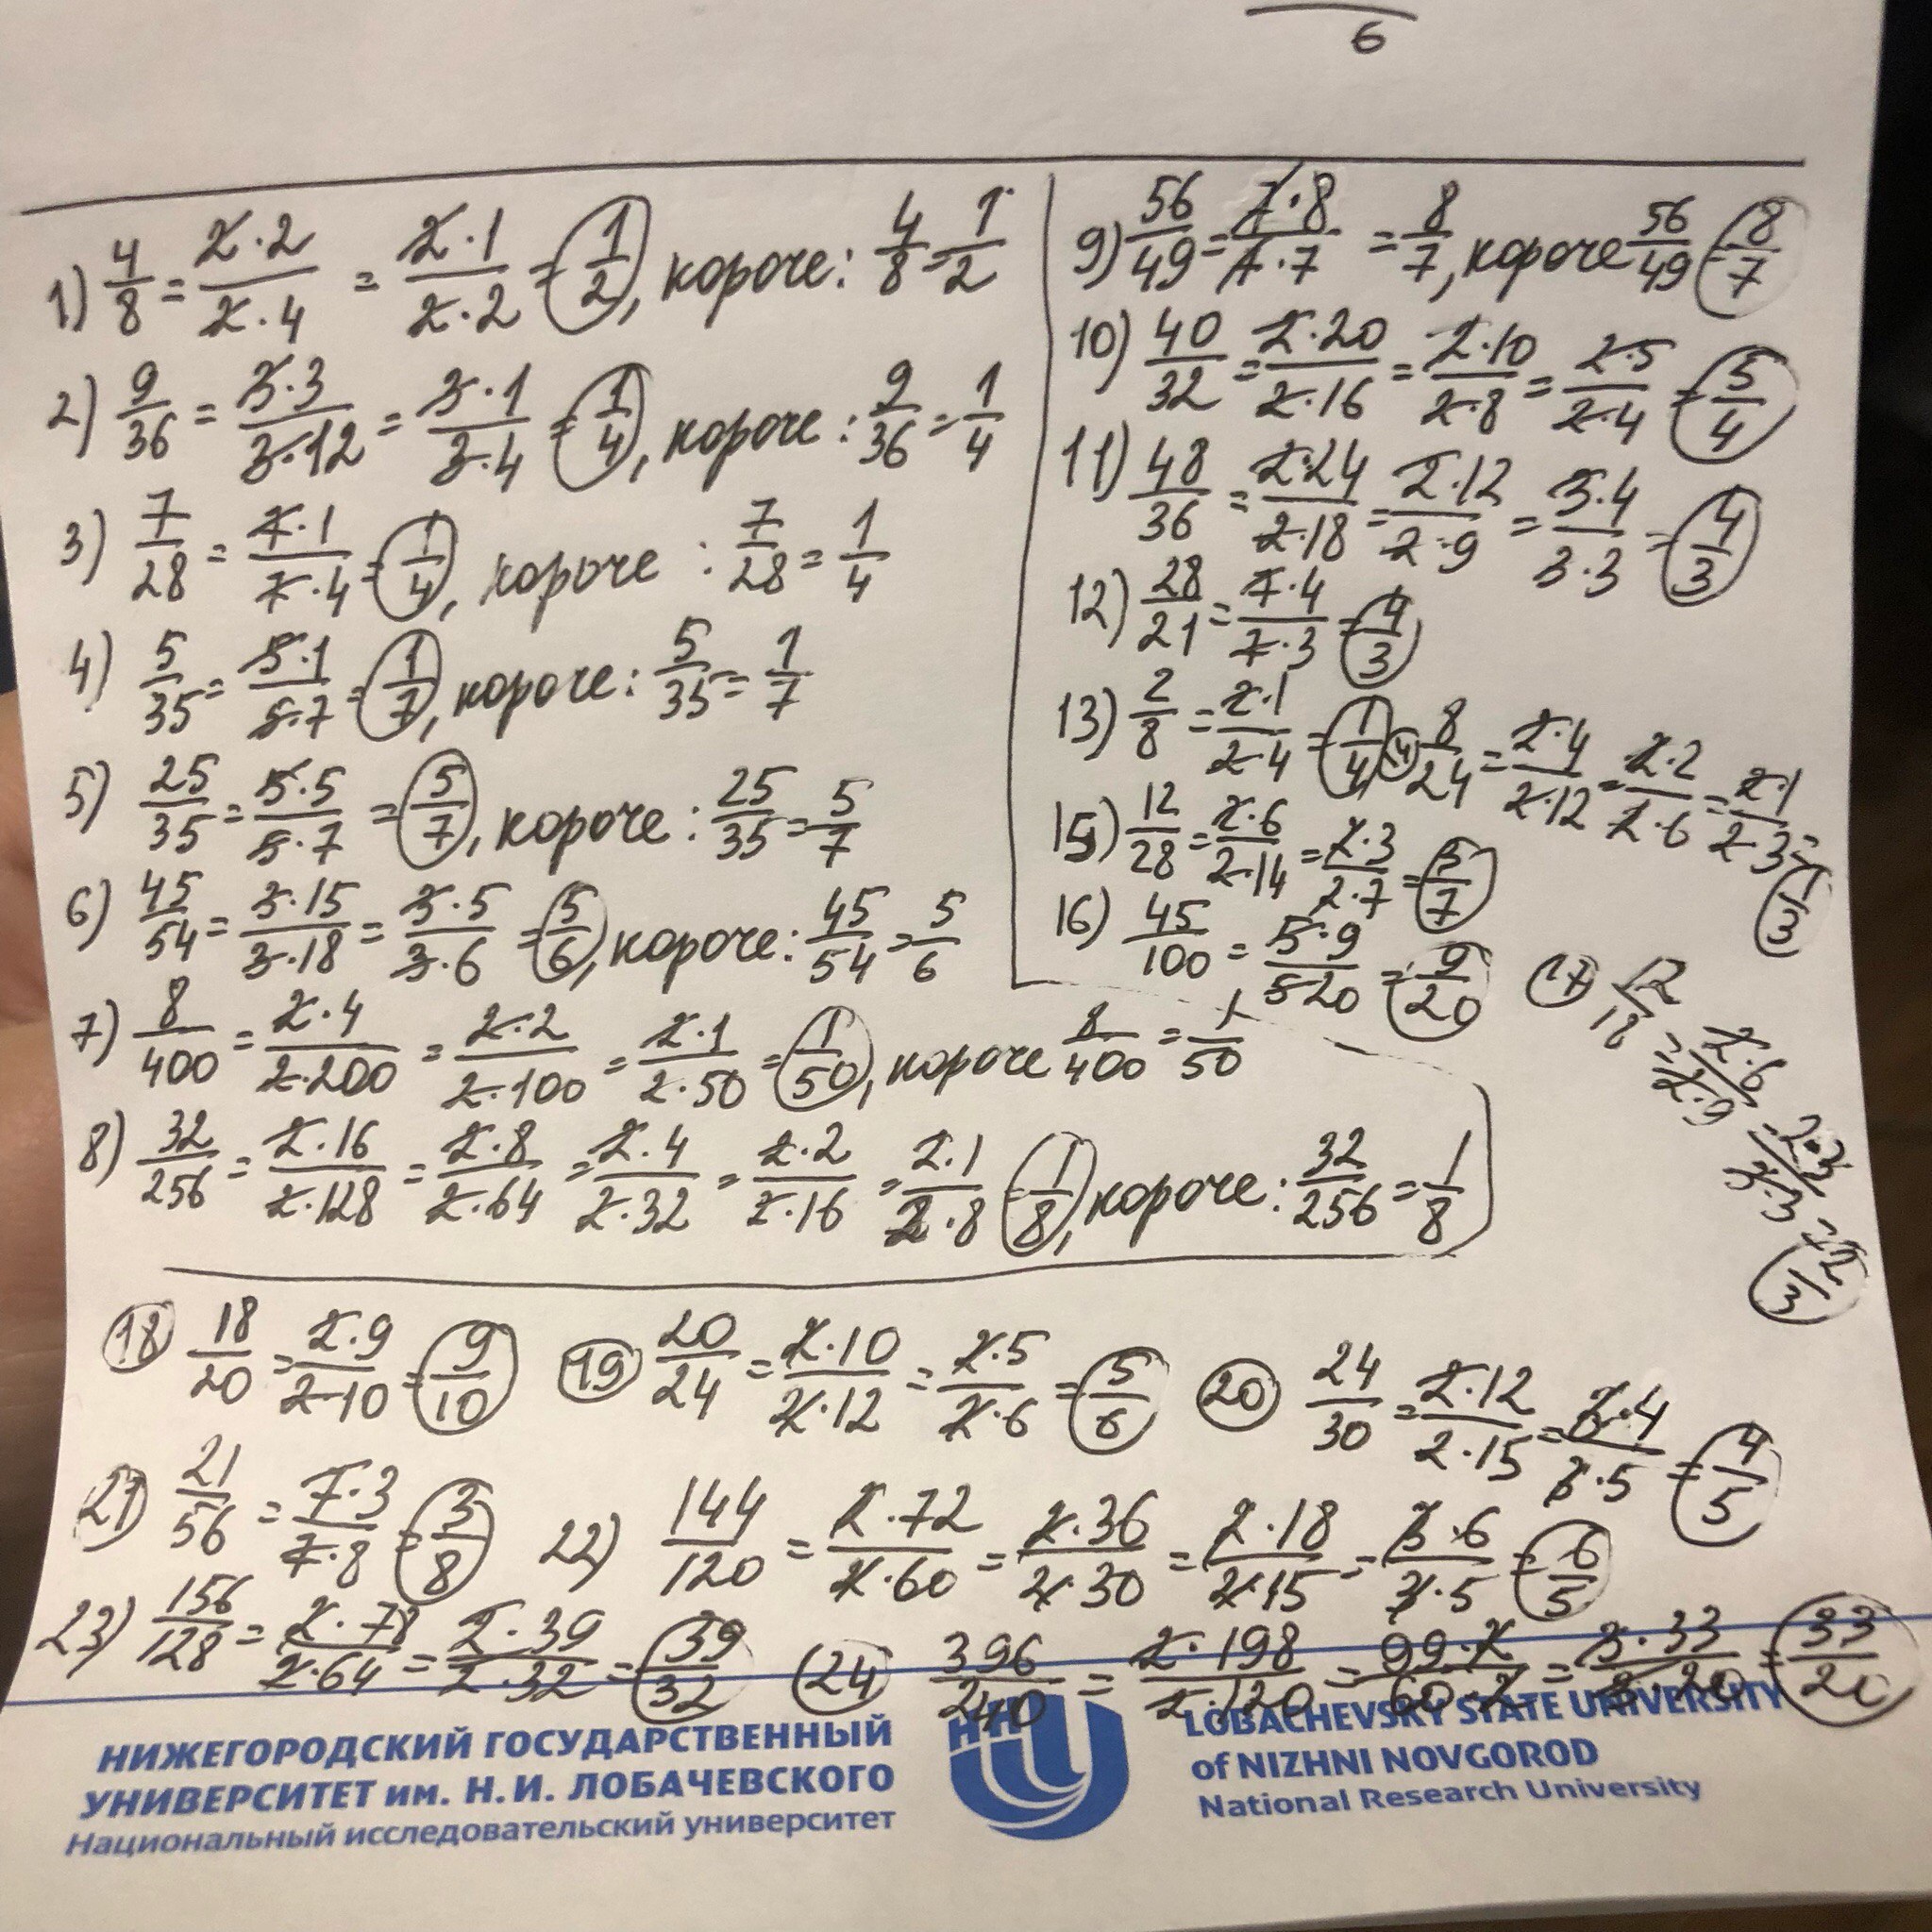 6
1) 4/8 = 2·2/2·4 = 2·1/2·2 = 1/2, короче: 4/8 = 1/2
2) 9/36 = 3·3/3·12 = 3·1/3·4 = 1/4, короче: 9/36 = 1/4
3) 7/28 = 7·1/7·4 = 1/4, короче : 7/28 = 1/4
4) 5/35 = 5·1/5·7 = 1/7, короче: 5/35 = 1/7
5) 25/35 = 5·5/5·7 = 5/7, короче : 25/35 = 5/7
6) 45/54 = 3·15/3·18 = 3·5/3·6 = 5/6, короче: 45/54 = 5/6
7) 8/400 = 2·4/2·200 = 2·2/2·100 = 2·1/2·50 = 1/50, короче 8/400 = 1/50
8) 32/256 = 2·16/2·128 = 2·8/2·64 = 2·4/2·32 = 2·2/2·16 = 2·1/2·8 = 1/8, короче: 32/256 = 1/8
9) 56/49 = 7·8/7·7 = 8/7, короче 56/49 = 8/7
10) 40/32 = 2·20/2·16 = 2·10/2·8 = 2·5/2·4 = 5/4
11) 48/36 = 2·24/2·18 = 2·12/2·9 = 3·4/3·3 = 4/3
12) 28/21 = 7·4/7·3 = 4/3
13) 2/8 = 2·1/2·4 = 1/4 14 8/24 = 2·4/2·12 = 2·2/2·6 = 2·1/2·3 = 1/3
15) 12/28 = 2·6/2·14 = 2·3/2·7 = 3/7
16) 45/100 = 5·9/5 20 = 9/20
17 12/18 = 2·6/2·9 = 2·3/3·3 = 2/3
18 18/20 = 2·9/2·10 = 9/10 19 20/24 = 2·10/2·12 = 2·5/2·6 = 5/6 20 24/30 = 2·12/2·15 = 3·4/3·5 = 4/5
21) 21/56 = 7·3/7·8 = 3/8 22) 144/120 = 2·72/2·60 = 2·36/2·30 = 2·18/2·15 = 3·6/3·5 = 6/5
23) 156/128 = 2·78/2·64 = 2·39/2·32 = 39/32 24 396/240 = 2·198/2·120 = 99·2/60·2 = 3·33/3·20 = 33/20
НИЖЕГОРОДСКИЙ ГОСУДАРСТВЕННЫЙ
УНИВЕРСИТЕТ им. Н. И. ЛОБАЧЕВСКОГО
Национальный исследовательский университет
ННГУ
LOBACHEVSKY STATE UNIVERSITY
of NIZHNI NOVGOROD
National Research University